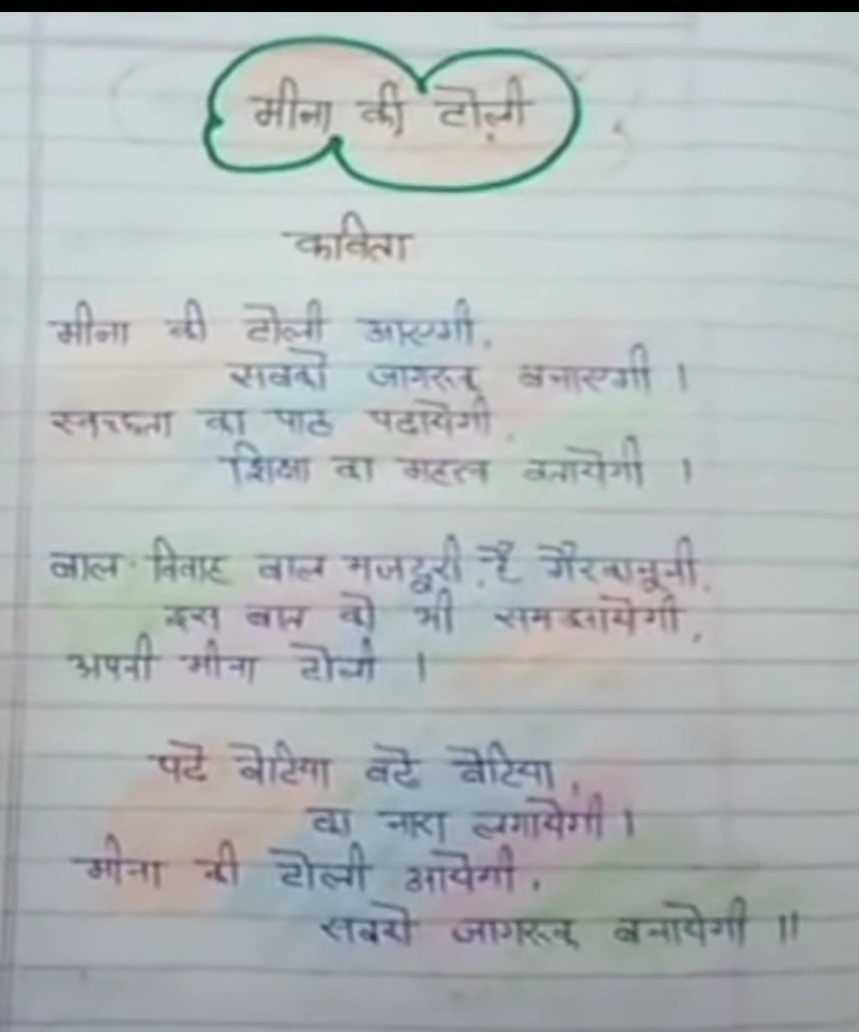 मीना की टोली
कविता
मीना की टोली आएगी,
सबको जागरूक बनाएगी ।
स्वच्छता का पाठ पढायेगी,
शिक्षा का महत्व बतायेगी ।
बाल-विवाह बाल मजदूरी, है गैरकानूनी,
इस बात को भी समझायेगी,
अपनी मीना टोली ।
पढे बेटिया बढे बेटिया,
का नारा लगायेगी ।
मीना की टोली आयेगी,
सबको जागरूक बनायेगी ॥